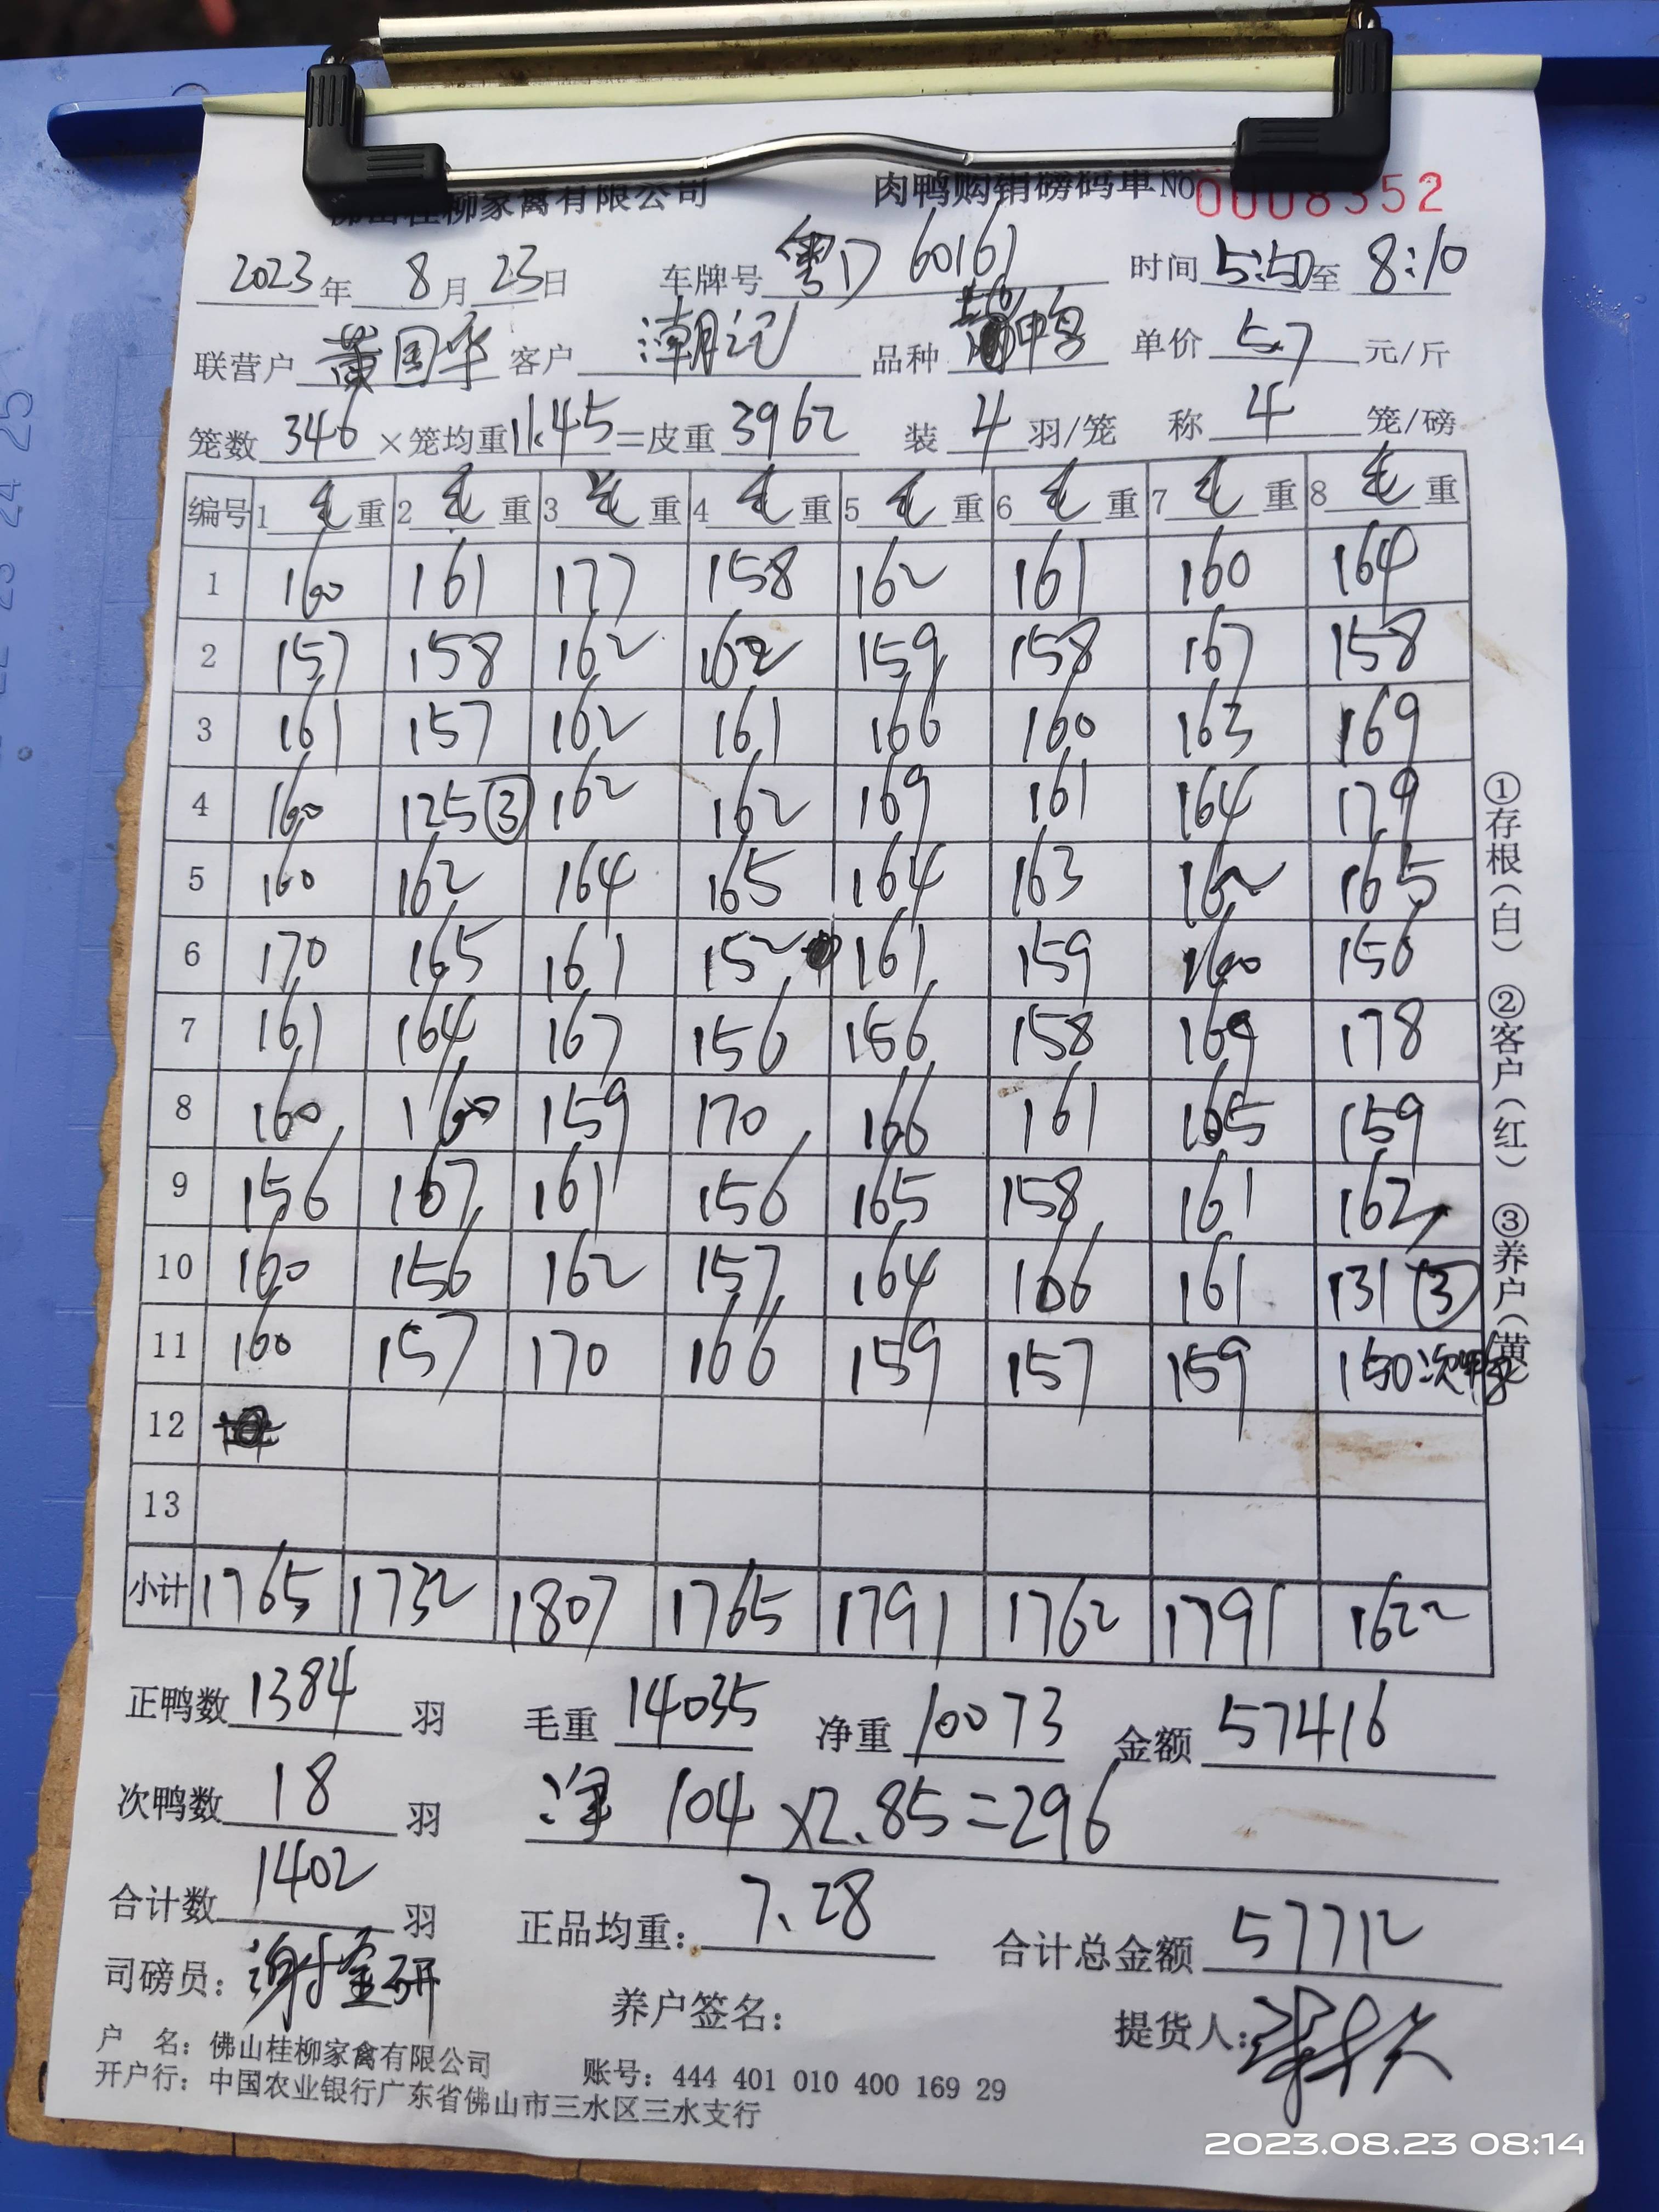 佛山桂柳家禽有限公司 肉鸭购销磅码单 NO 0008352
2023年 8月 23日 车牌号 粤D 60161 时间 5:50 至 8:10
联营户 黄国华 客户 潮记 品种 鸭 单价 5.7 元/斤
笼数 346 ×笼均重 11.45 =皮重 3962 装 4 羽/笼 称 4 笼/磅
编号 1 毛 重 2 毛 重 3 毛 重 4 毛 重 5 毛 重 6 毛 重 7 毛 重 8 毛 重
1 160 161 177 158 162 161 160 164
2 157 158 162 162 159 158 167 158
3 161 157 162 161 166 160 163 169
4 160 125③ 162 162 169 161 164 179
5 160 162 164 165 164 163 162 165
6 170 165 161 152 161 159 160 156
7 161 164 167 156 156 158 169 178
8 160 160 159 170 166 161 165 159
9 156 167 161 156 165 158 161 162
10 160 156 162 157 164 166 161 131③
11 160 157 170 166 159 157 159 150次鸭
12
13
小计 1765 1732 1807 1765 1791 1762 1791 1622
①存根(白) ②客户(红) ③养户(黄)
正鸭数 1384 羽 毛重 14035 净重 10073 金额 57416
次鸭数 18 羽 净 104 ×2.85=296
合计数 1402 羽 正品均重: 7.28 合计总金额 57712
司磅员: 养户签名: 提货人:
户 名: 佛山桂柳家禽有限公司 账号: 444 401 010 400 169 29
开户行: 中国农业银行广东省佛山市三水区三水支行
2023.08.23 08:14